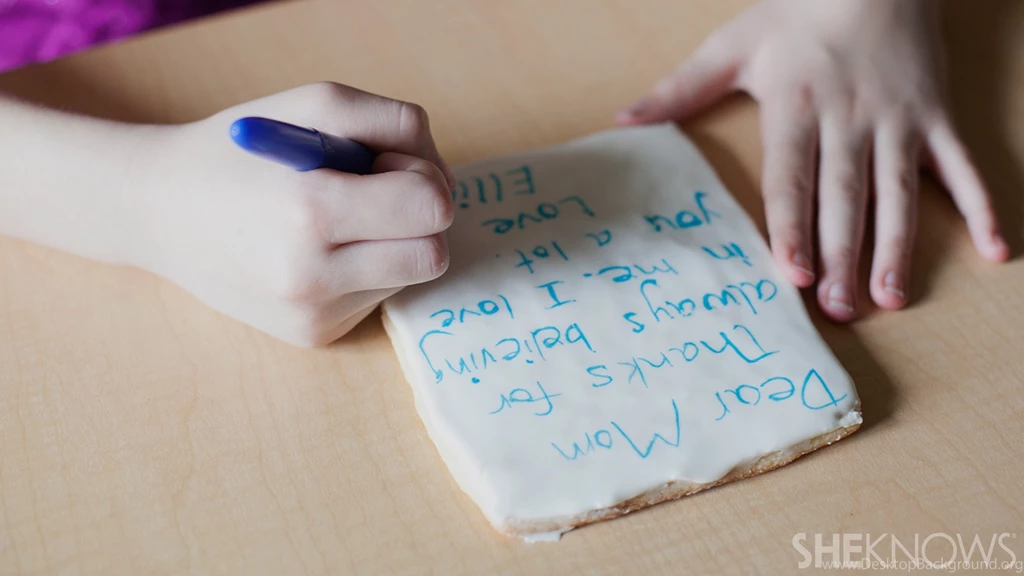 Dear Mom
Thanks for
always believing
in me. I love
you a lot.
Love
Elli
SHEKNOWS
www.DesktopBackground.org